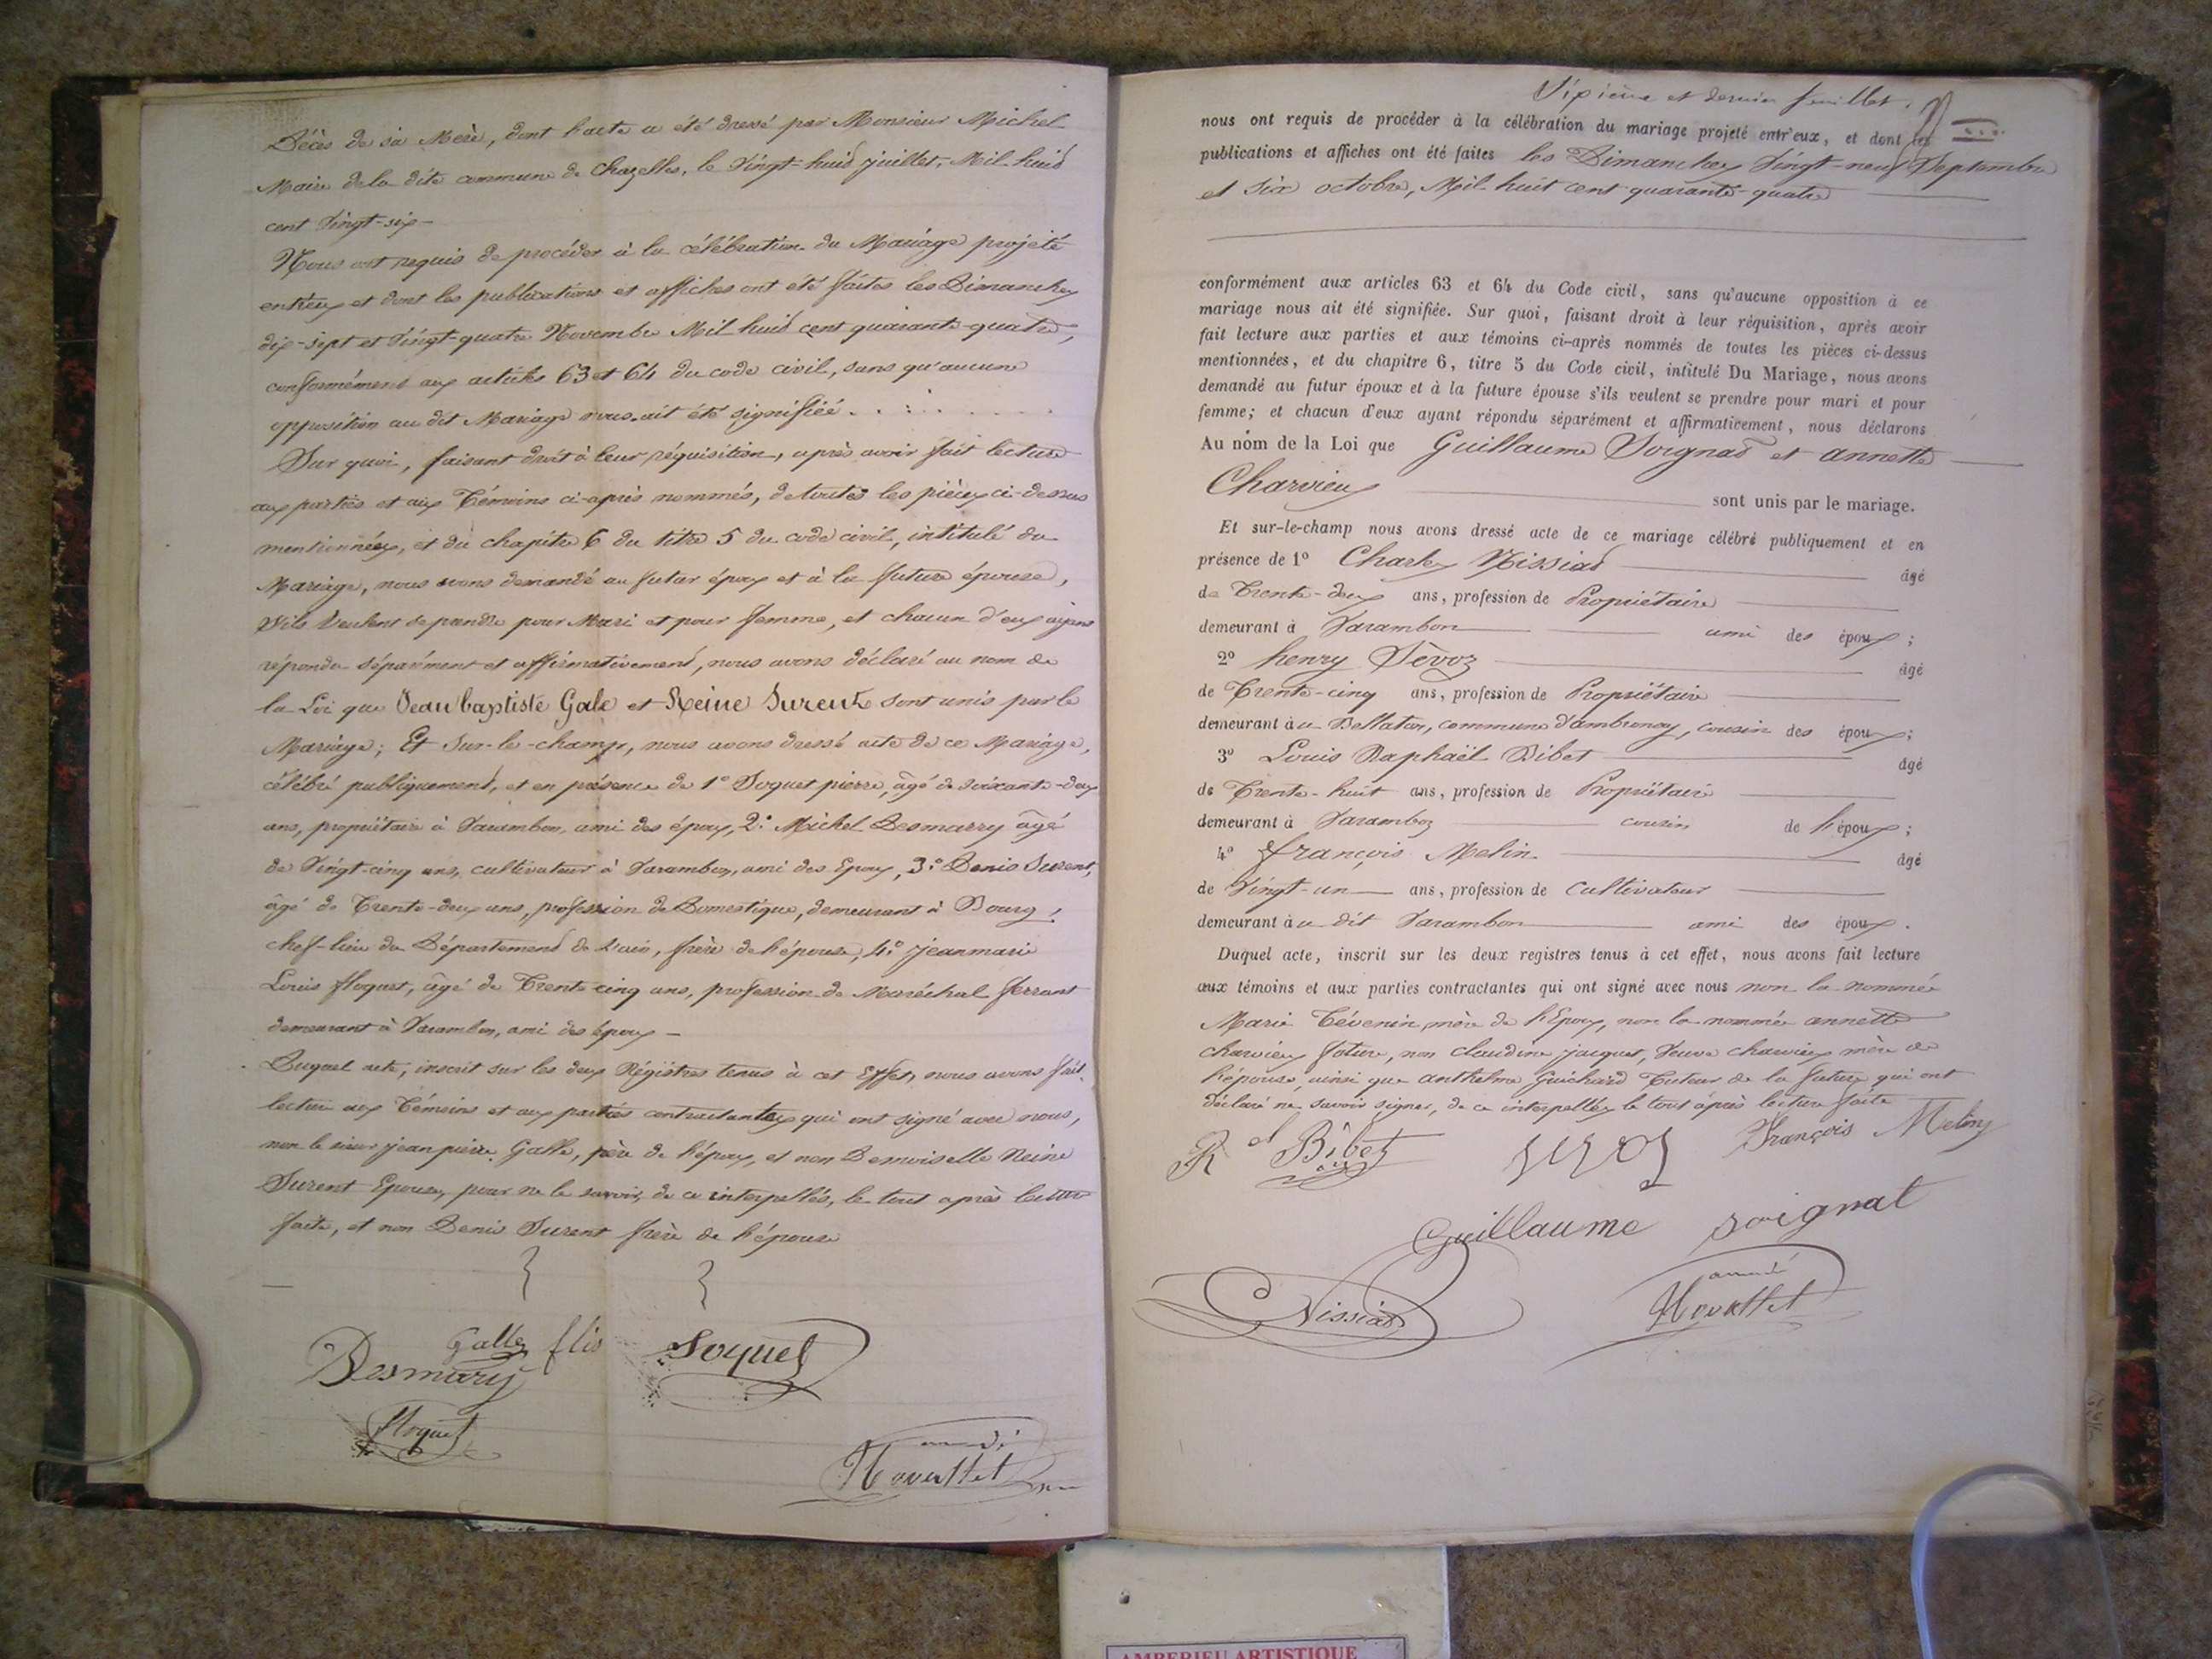 Décès de sa Mère, dont l'acte a été dressé par Monsieur Michel
Maire de la dite commune de Chazelles, le Vingt-huid juillet, Mil-huid
cent Vingt-six-
Nous ont requis de procéder à la célébration du Mariage projeté
entr'eux et dont les publications et affiches ont été faites les Dimanches
dix-sept et Vingt-quatre Novembre Mil huid cent quarante-quatre,
conformément aux articles 63 et 64 du code civil, sans qu'aucune
opposition au dit Mariage nous ait été signifiée
Sur quoi, faisant droit à leur réquisition, après avoir fait lecture
aux parties et aux Témoins ci-après nommés, de toutes les pièces ci-dessus
mentionnées, et du chapitre 6 du titre 5 du code civil, intitulé du
Mariage, nous avons demandé au futur époux et à la future épouse,
s'ils Veulent se prendre pour Mari et pour femme, et chacun d'eux ayant
répondu séparément et affirmativement, nous avons déclaré au nom de
la Loi que Jean baptiste Galle et Reine Surent sont unis par le
Mariage; Et Sur-le-champ, nous avons dressé acte de ce Mariage,
célébré publiquement, et en présence de 1° Soquet pierre, âgé de soixante-deux
ans, propriétaire à Varambon, ami des époux, 2° Michel Desmarry âgé
de Vingt-cinq ans, cultivateur à Varambon, ami des Epoux, 3° Denis Surent,
âgé de Trente-deux ans, profession de Domestique, demeurant à Bourg,
chef-lieu du Département de l'ain, frère de l'épouse, 4° jean marie
Louis floquet, âgé de Trente cinq ans, profession de Maréchal ferrant
demeurant à Varambon, ami des époux -
Duquel acte, inscrit sur les deux Régistres tenus à cet Effet, nous avons fait
lecture aux Témoins et aux parties contractantes qui ont signé avec nous,
non le sieur jean pierre Galle, père de l'époux, et non Demoiselle Reine
Surent Epouse, pour ne le savoir, de ce interpellés, le tout après lecture
faite, et non Denis Surent frère de l'épouse
Galle fils Soquet
Desmarry
floquet
Sixième et dernier feuillet.
nous ont requis de procéder à la célébration du mariage projeté entr'eux, et dont les
publications et affiches ont été faites les Dimanches Vingt-neuf Septembre
et six octobre, Mil huit cent quarante-quatre
conformément aux articles 63 et 64 du Code civil, sans qu'aucune opposition à ce
mariage nous ait été signifiée. Sur quoi, faisant droit à leur réquisition, après avoir
fait lecture aux parties et aux témoins ci-après nommés de toutes les pièces ci-dessus
mentionnées, et du chapitre 6, titre 5 du Code civil, intitulé Du Mariage, nous avons
demandé au futur époux et à la future épouse s'ils veulent se prendre pour mari et pour
femme; et chacun d'eux ayant répondu séparément et affirmativement, nous déclarons
Au nom de la Loi que Guillaume Soignat et annette
Charvieux sont unis par le mariage.
Et sur-le-champ nous avons dressé acte de ce mariage célébré publiquement et en
présence de 1° Charles Nissiat âgé
de Trente-deux ans, profession de Propriétaire
demeurant à Varambon ami des époux;
2° henry Sèvoz âgé
de Trente-cinq ans, profession de Propriétaire
demeurant à u Bellaton, commune d'ambronay, cousin des époux;
3° Louis Raphaël Bibet âgé
de Trente-huit ans, profession de Propriétaire
demeurant à Varambon cousin de l'époux;
4° françois Melin âgé
de Vingt-un ans, profession de cultivateur
demeurant à u dit Varambon ami des époux.
Duquel acte, inscrit sur les deux registres tenus à cet effet, nous avons fait lecture
aux témoins et aux parties contractantes qui ont signé avec nous non la nommée
Marie Tévenin, mère de l'Epoux, non la nommée annette
charvieux future, non claudine jacquet, Veuve charvieux mère de
l'épouse, ainsi que anthelme Guichard Tuteur de la future qui ont
déclaré ne savoir signer, de ce interpellés le tout après lecture faite
R el Bibet sevoz François Melin
Guillaume soignat
Nissiat
AMBERIEU ARTISTIQUE